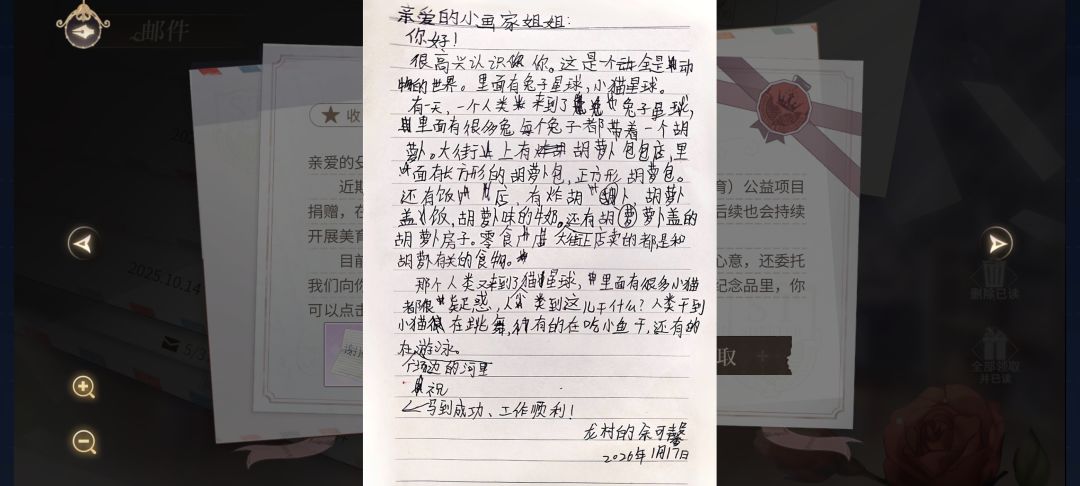 邮件
2025.10.14
5/3
收
亲爱的
近期
捐赠，在
开展美育
目前
我们向你
可以点击
育）公益项目
后续也会持续
心意，还委托
纪念品里，你
取
删除已读
全部领取
并已读
亲爱的小画家姐姐：
你好！
很高兴认识你。这是一个全是动
物的世界。里面有兔子星球，小猫星球。
有一天，一个人类来到了兔子星球，
里面有很多兔每个兔子都带着一个胡
萝卜。大街上有胡萝卜包包店，里
面有长方形的胡萝卜包，正方形胡萝包。
还有饭店，有炸胡卜，胡萝卜
盖饭，胡萝卜味的牛奶。还有胡萝卜盖的
胡萝卜房子。零食店大街店卖的都是和
胡萝卜有关的食物。
那个人类又来到了猫星球，里面有很多小猫
都很疑惑，人类到这儿干什么？人类干到
小猫在跳舞，有的在吃小鱼干，还有
在游泳。
边的河里
祝
马到成功、工作顺利！
龙村的余可馨
2026年1月17日